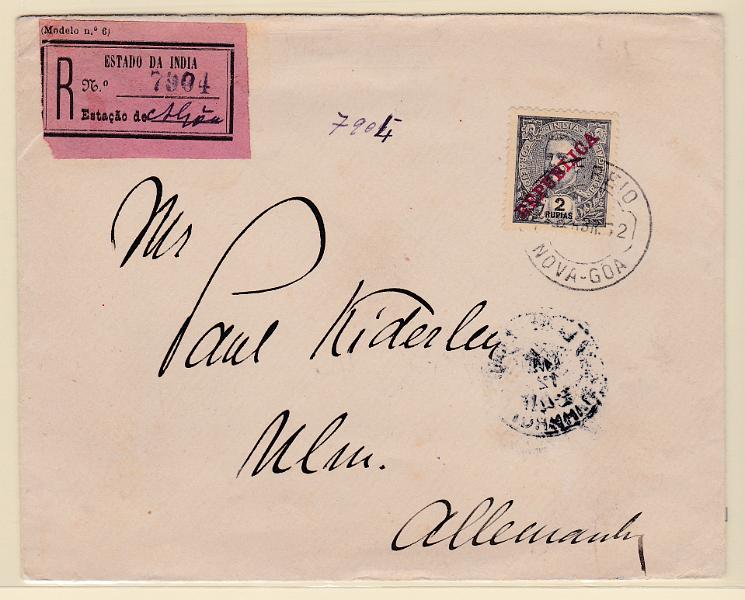 (Modelo n.º 6)
ESTADO DA INDIA
R N.º 7904
Estação de
7904
INDIA
REPUBLICA
2
RUPIAS
NOVA-GOA
Mr
Paul Kiderlen
Ulm.
Allemanha